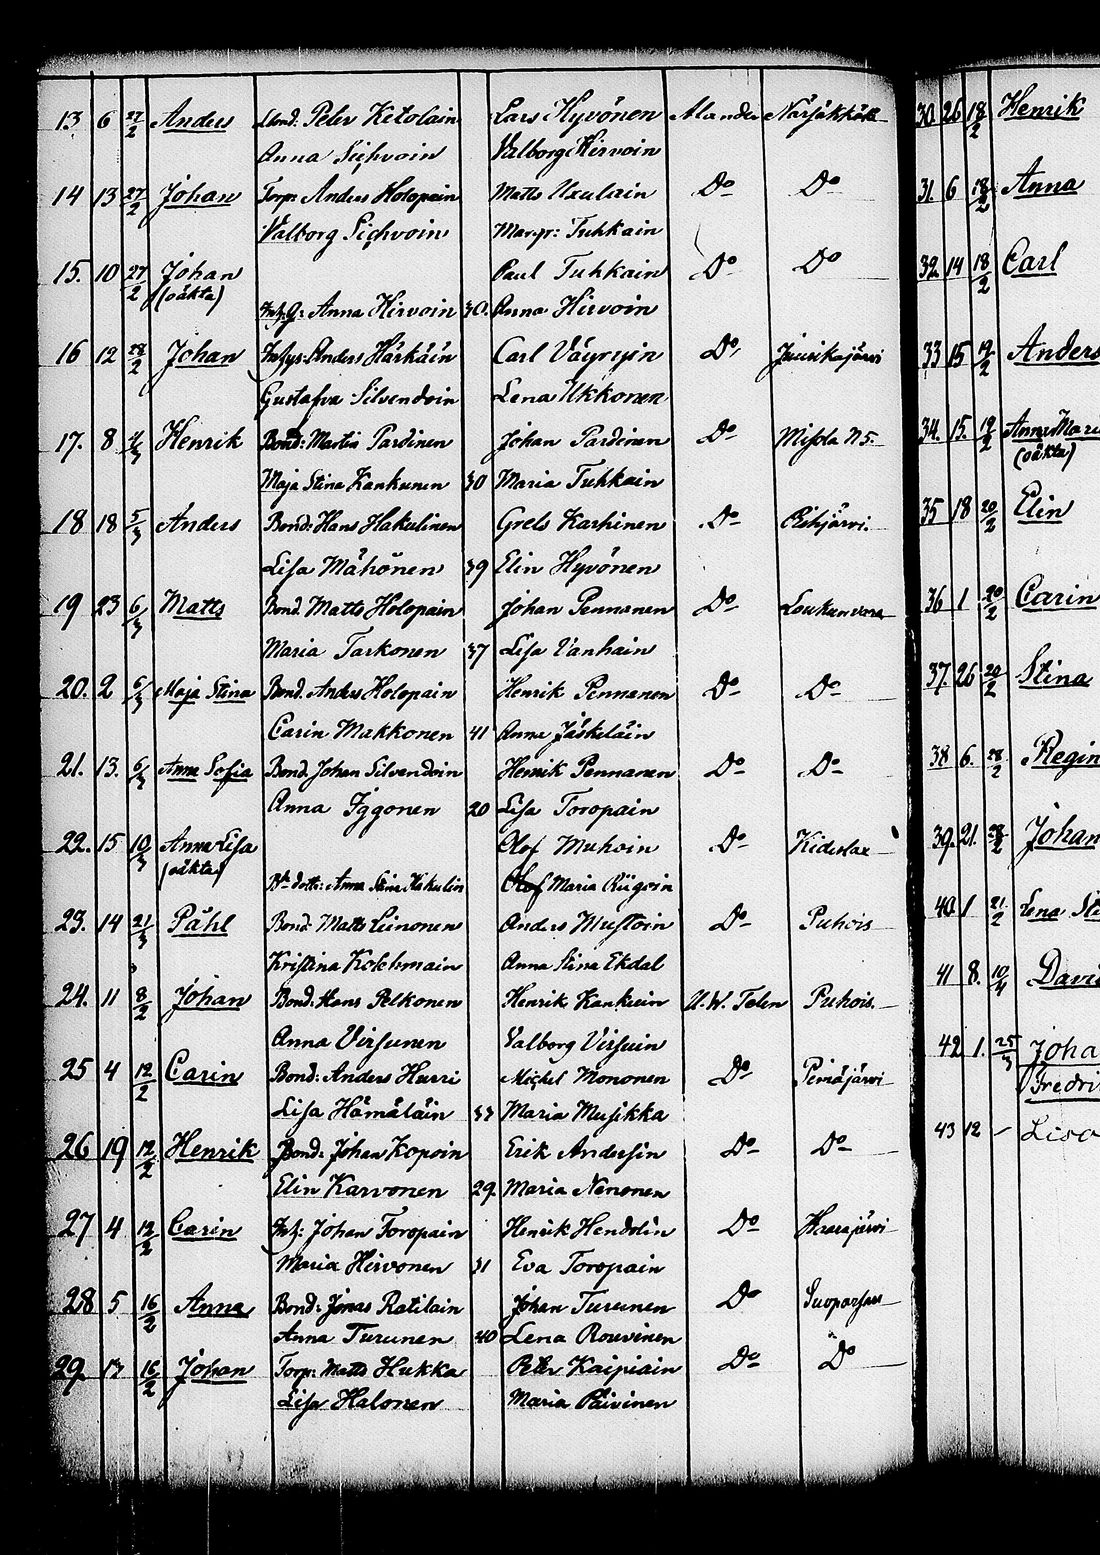 13 6 27/2 Anders Bond: Peter Ketolain Lars Hyvönen Alander Närsäkkälä
Anna Sichvoin Valborg Hirvoin
14 13 27/2 Johan Torp: Anders Holopain Matts Uxulain Do Do
Valborg Sichvoin Margr: Tuhkain
15. 10 27/2 Johan Paul Tuhkain Do Do
(oäkta) Inh. Q: Anna Hirvoin 30. Anna Hirvoin
16 12 28/2 Johan Inhys: Anders Härkäin Carl Väyryin Do Juurikajärvi
Gustafva Silvendoin Lena Ukkonen
17. 8 4/3 Henrik Bond: Martin Pardinen Johan Pardinen Do Misola N5.
Maja Stina Kankunen 30 Maria Tuhkain
18 18 5/3 Anders Bond: Hans Hakulinen Grels Karhinen Do Rihjärvi.
Lisa Mähönen 39 Elin Hyvönen
19 23 6/3 Matts Bond Matts Holopain Johan Pennanen Do Loukunvara
Maria Tarkonen 37 Lisa Vanhain
20. 2 6/3 Maja Stina Bond. Anders Holopain Henrik Pennanen Do Do
Carin Makkonen 41 Anna Jäskeläin
21. 13. 6/3 Anna Sofia Bond. Johan Silvendoin Henrik Pennanen Do Do
Anna Iggonen 20 Lisa Toropain
22. 15 10/3 Anna Lisa Olof Muhoin Do Kideslax
(oäkta) Bde dottr: Anna Stina Hakulin Maria Riigoin
23. 14 21/3 Påhl Bond: Matts Leinonen Anders Mustoin Do Puhois
Kristina Kolehmain Anna Stina Ekdal
24. 11 8/2 Johan Bond: Hans Pelkonen Henrik Kankuin U. W. Telen Puhois
Anna Virsunen Valborg Virsuin
25 4 12/2 Carin Bond: Anders Hurri Michel Mononen Do Pemäjärvi
Lisa Hämäläin 37 Maria Musikka
26 19 12/2 Henrik Bond: Johan Kopoin Erik Andersin Do Do
Elin Karvonen 29. Maria Nenonen
27 4 12/2 Carin Inh: Johan Toropain Henrik Hendolin Do
Maria Hirvonen 31 Eva Toropain
28 5 16/2 Anna Bond: Jonas Ratilain Johan Turunen Do Suoparsau
Anna Turunen 40 Lena Rouvinen
29. 17 16/2 Johan Torp: Matts Hukka Petter Kaipiain Do Do
Lisa Halonen Maria Päivinen
30. 26 18/2 Henrik
31. 6 18/2 Anna
32. 14 18/2 Carl
33 15 19/2 Anders
34. 15. 19/2 Anna Mari
(oäkta)
35 18 20/2 Elin
36 1 20/2 Carin
37. 26 20/2 Stina
38 6. 28/2 Regin
39. 21. 28/2 Johan
40. 1 21/2 Lena Sti
41 8. 10/4 David
42 1. 25/3 Joha
Fredri
43 12 - Lisa